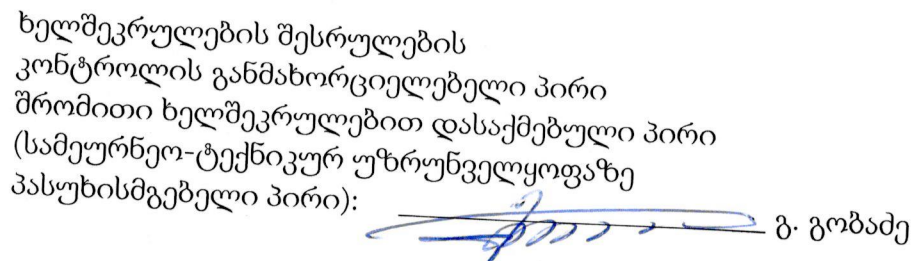 ხელშეკრულების შესრულების
კონტროლის განმახორციელებელი პირი
შრომითი ხელშეკრულებით დასაქმებული პირი
(სამეურნეო-ტექნიკურ უზრუნველყოფაზე
პასუხისმგებელი პირი):
გ. გობაძე